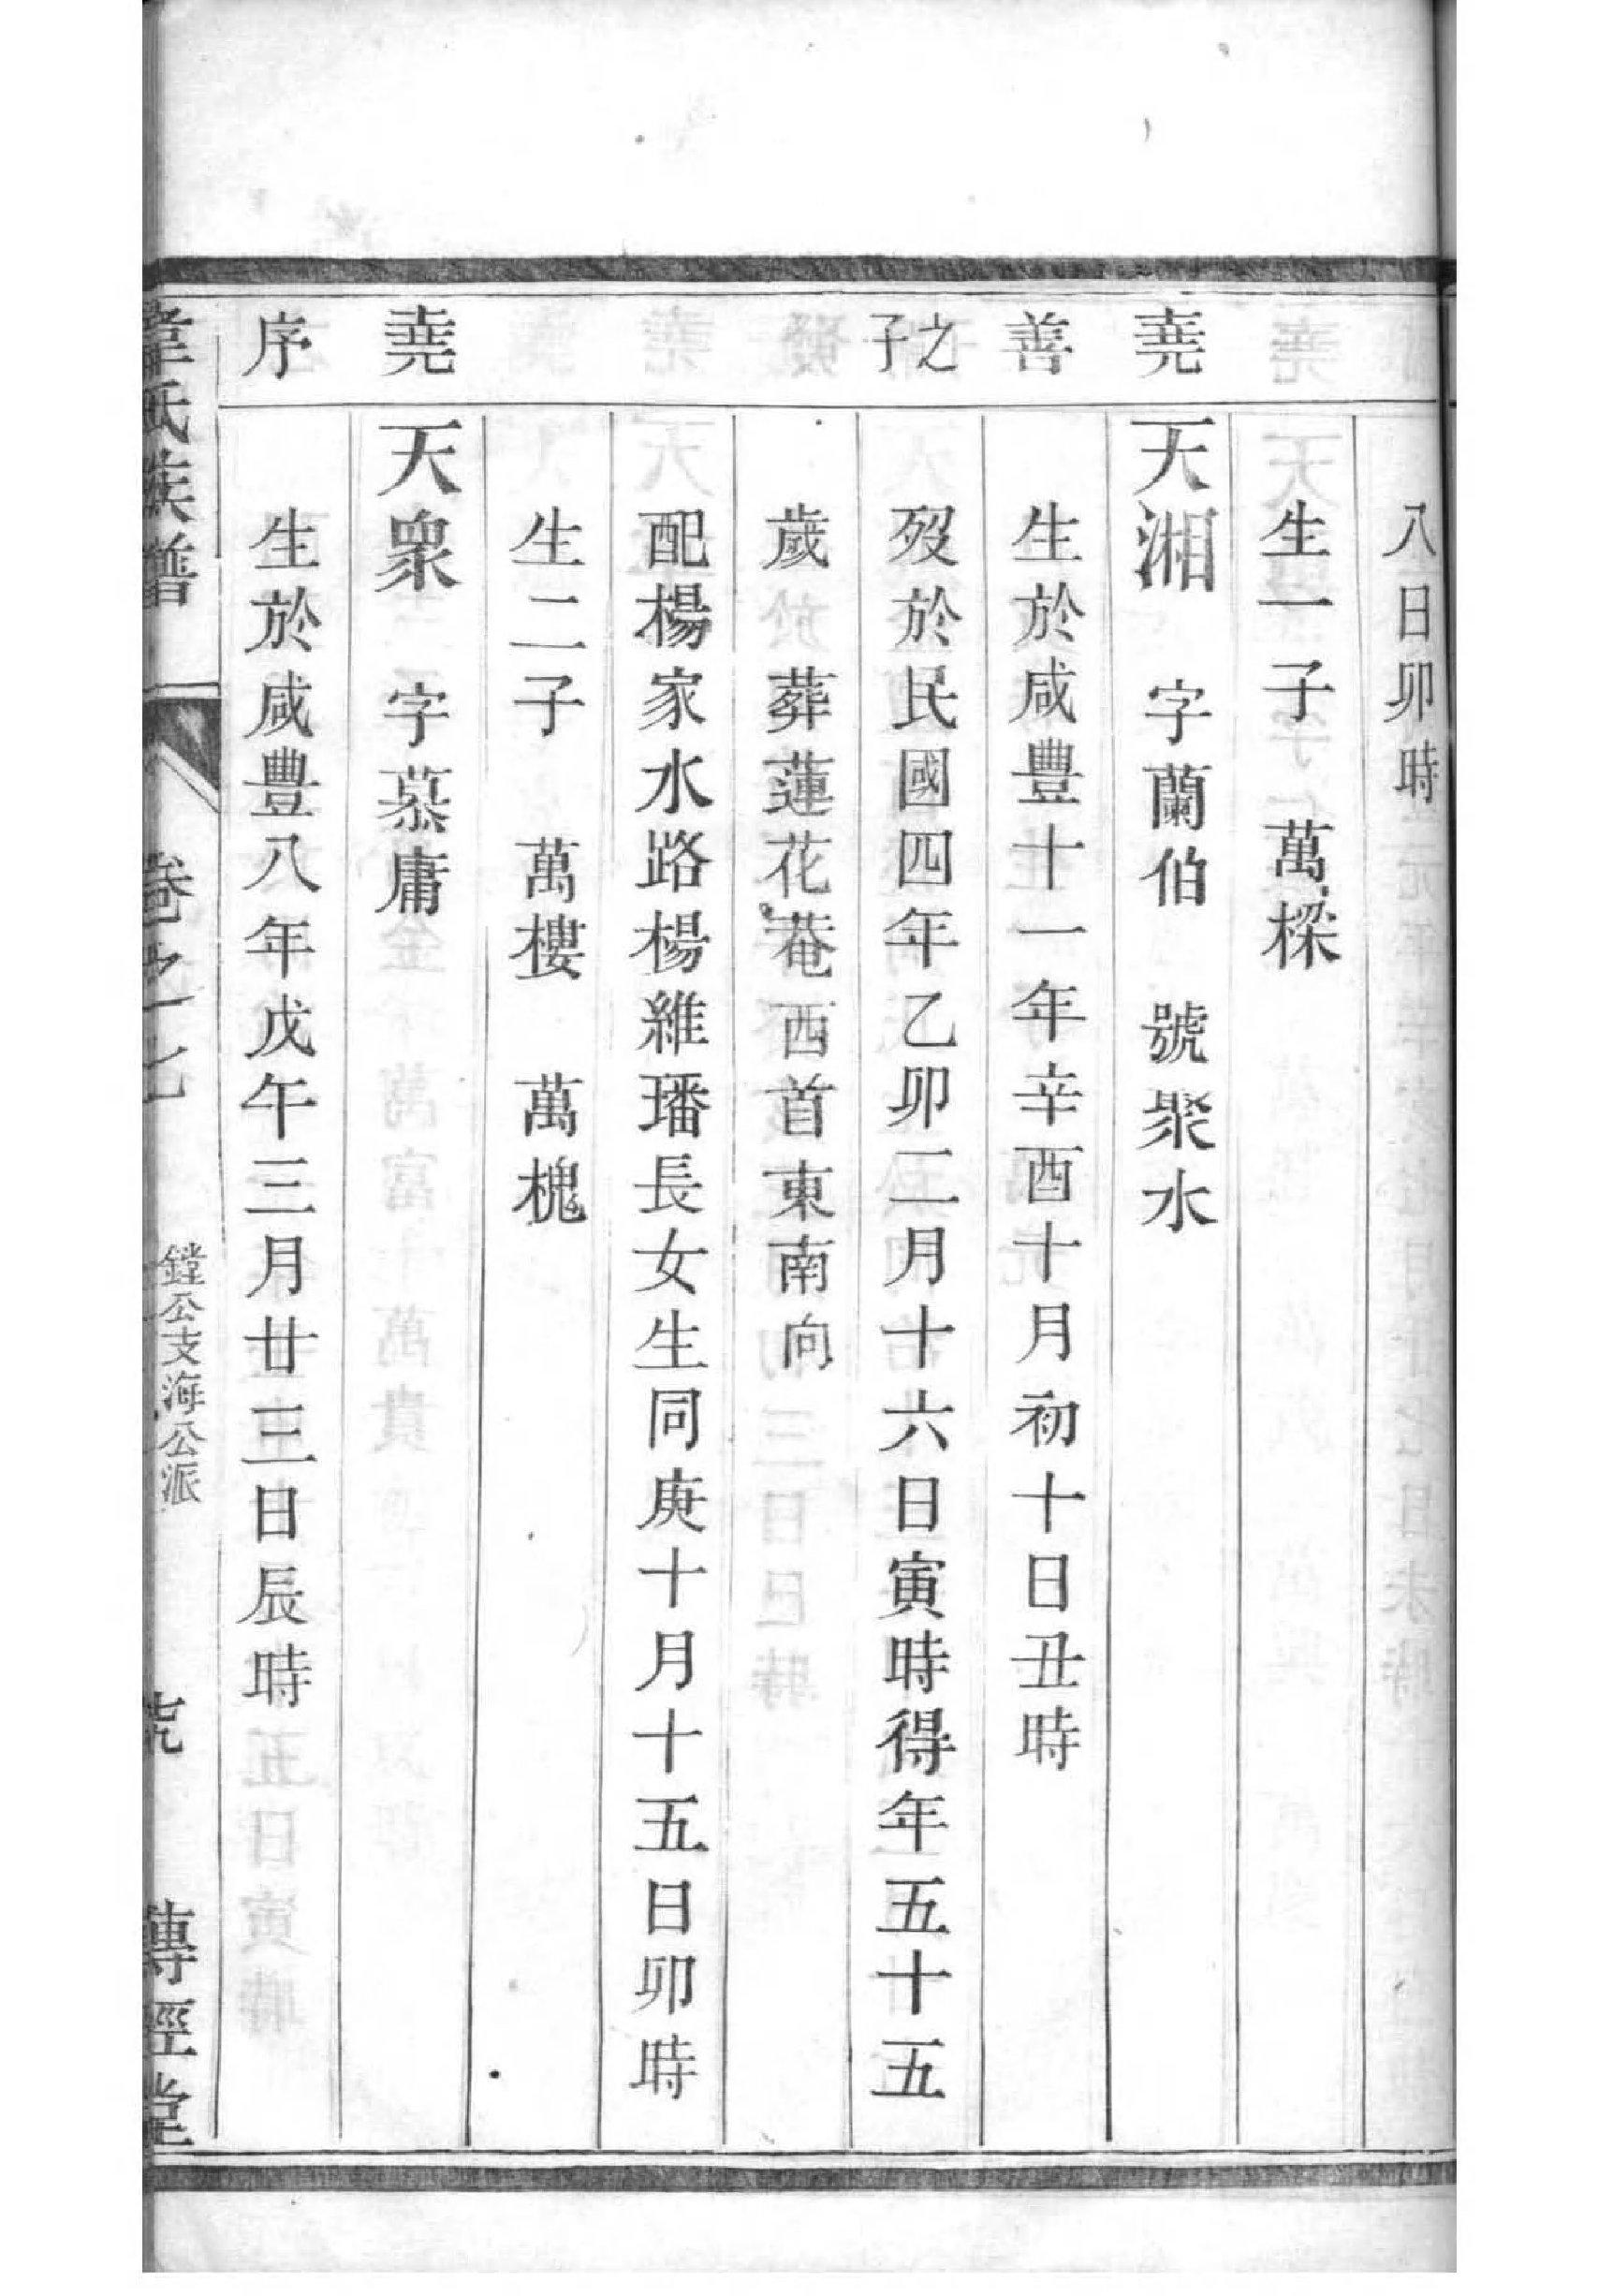 八日卯時
生一子　萬樑
堯
天湘　字蘭伯　號聚水
善
生於咸豐十一年辛酉十月初十日丑時
之子
歿於民國四年乙卯二月十六日寅時得年五十五
歲　葬蓮花菴西首東南向
配楊家水路楊維璠長女生同庚十月十五日卯時
生二子　萬樓　萬槐
堯
天衆　字慕庸
序
生於咸豐八年戊午三月廿三日辰時
韋氏族譜　卷之七　鏜公支海公派　傳經堂